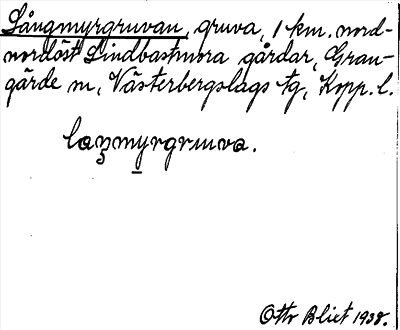 Långmyrgruvan, gruva, 1 km. nord-
nordöst Lindbastmora gårdar, Gran-
gärde sn, Västerbergslags tg, Kopp. l.
laŋmy̲rgruva.
Otto Blixt 1938.